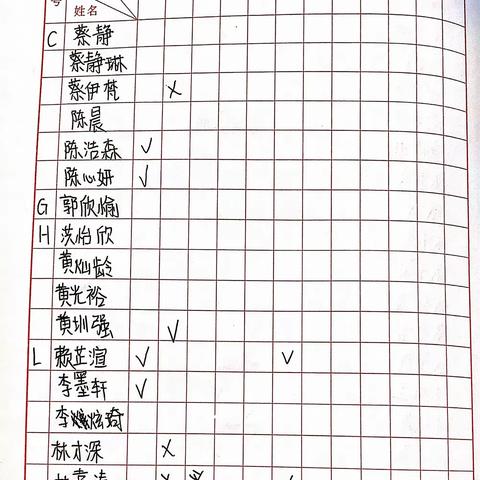 号
姓名
C 蔡静
蔡静琳
蔡伊梵 ×
陈晨
陈浩森 √
陈心妍 √
G 郭欣愉
H 洪怡欣
黄仙龄
黄光裕
黄圳强 √
L 赖芷渲 √ √
李墨轩 √
李炫琦
林才深 ×